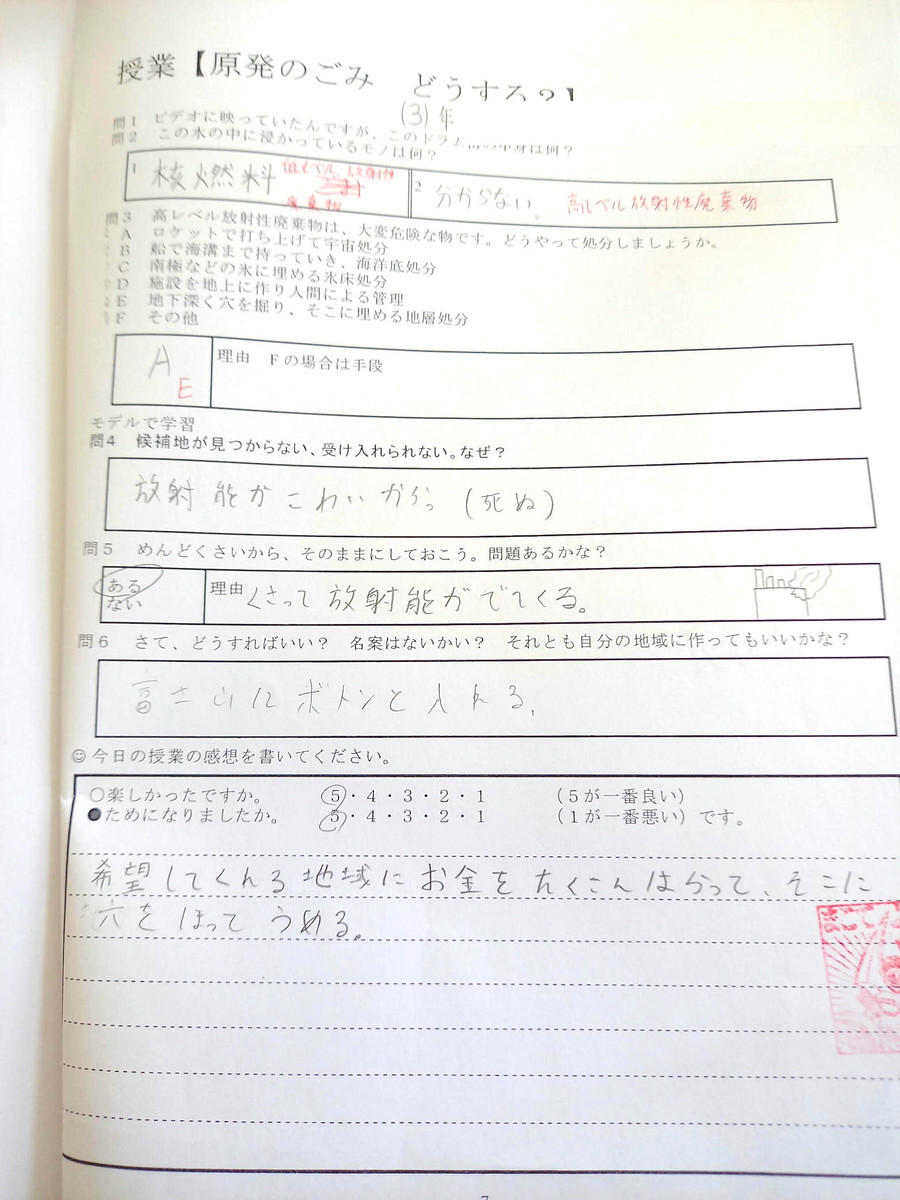 授業【原発のごみ どうする？】
(3)年
問1 ビデオに映っていたんですが、このドラム缶の中身は何？
問2 この水の中に浸かっているモノは何？
1 核燃料 低レベル放射性廃棄物
2 分からない。 高レベル放射性廃棄物
問3 高レベル放射性廃棄物は、大変危険な物です。どうやって処分しましょうか。
A ロケットで打ち上げて宇宙処分
B 船で海溝まで持っていき、海洋底処分
C 南極などの氷に埋める氷床処分
D 施設を地上に作り人間による管理
E 地下深く穴を掘り、そこに埋める地層処分
F その他
A E 理由 Fの場合は手段
モデルで学習
問4 候補地が見つからない、受け入れられない。なぜ？
放射能がこわいから。(死ぬ)
問5 めんどくさいから、そのままにしておこう。問題あるかな？
ある
ない
理由 くさって放射能がでてくる。
問6 さて、どうすればいい？ 名案はないかい？ それとも自分の地域に作ってもいいかな？
富士山にボトンと入れる。
☺今日の授業の感想を書いてください。
○楽しかったですか。 5・4・3・2・1 （5が一番良い）
●ためになりましたか。 5・4・3・2・1 （1が一番悪い）です。
希望してくれる地域にお金をたくさんはらって、そこに
穴をほってうめる。
7